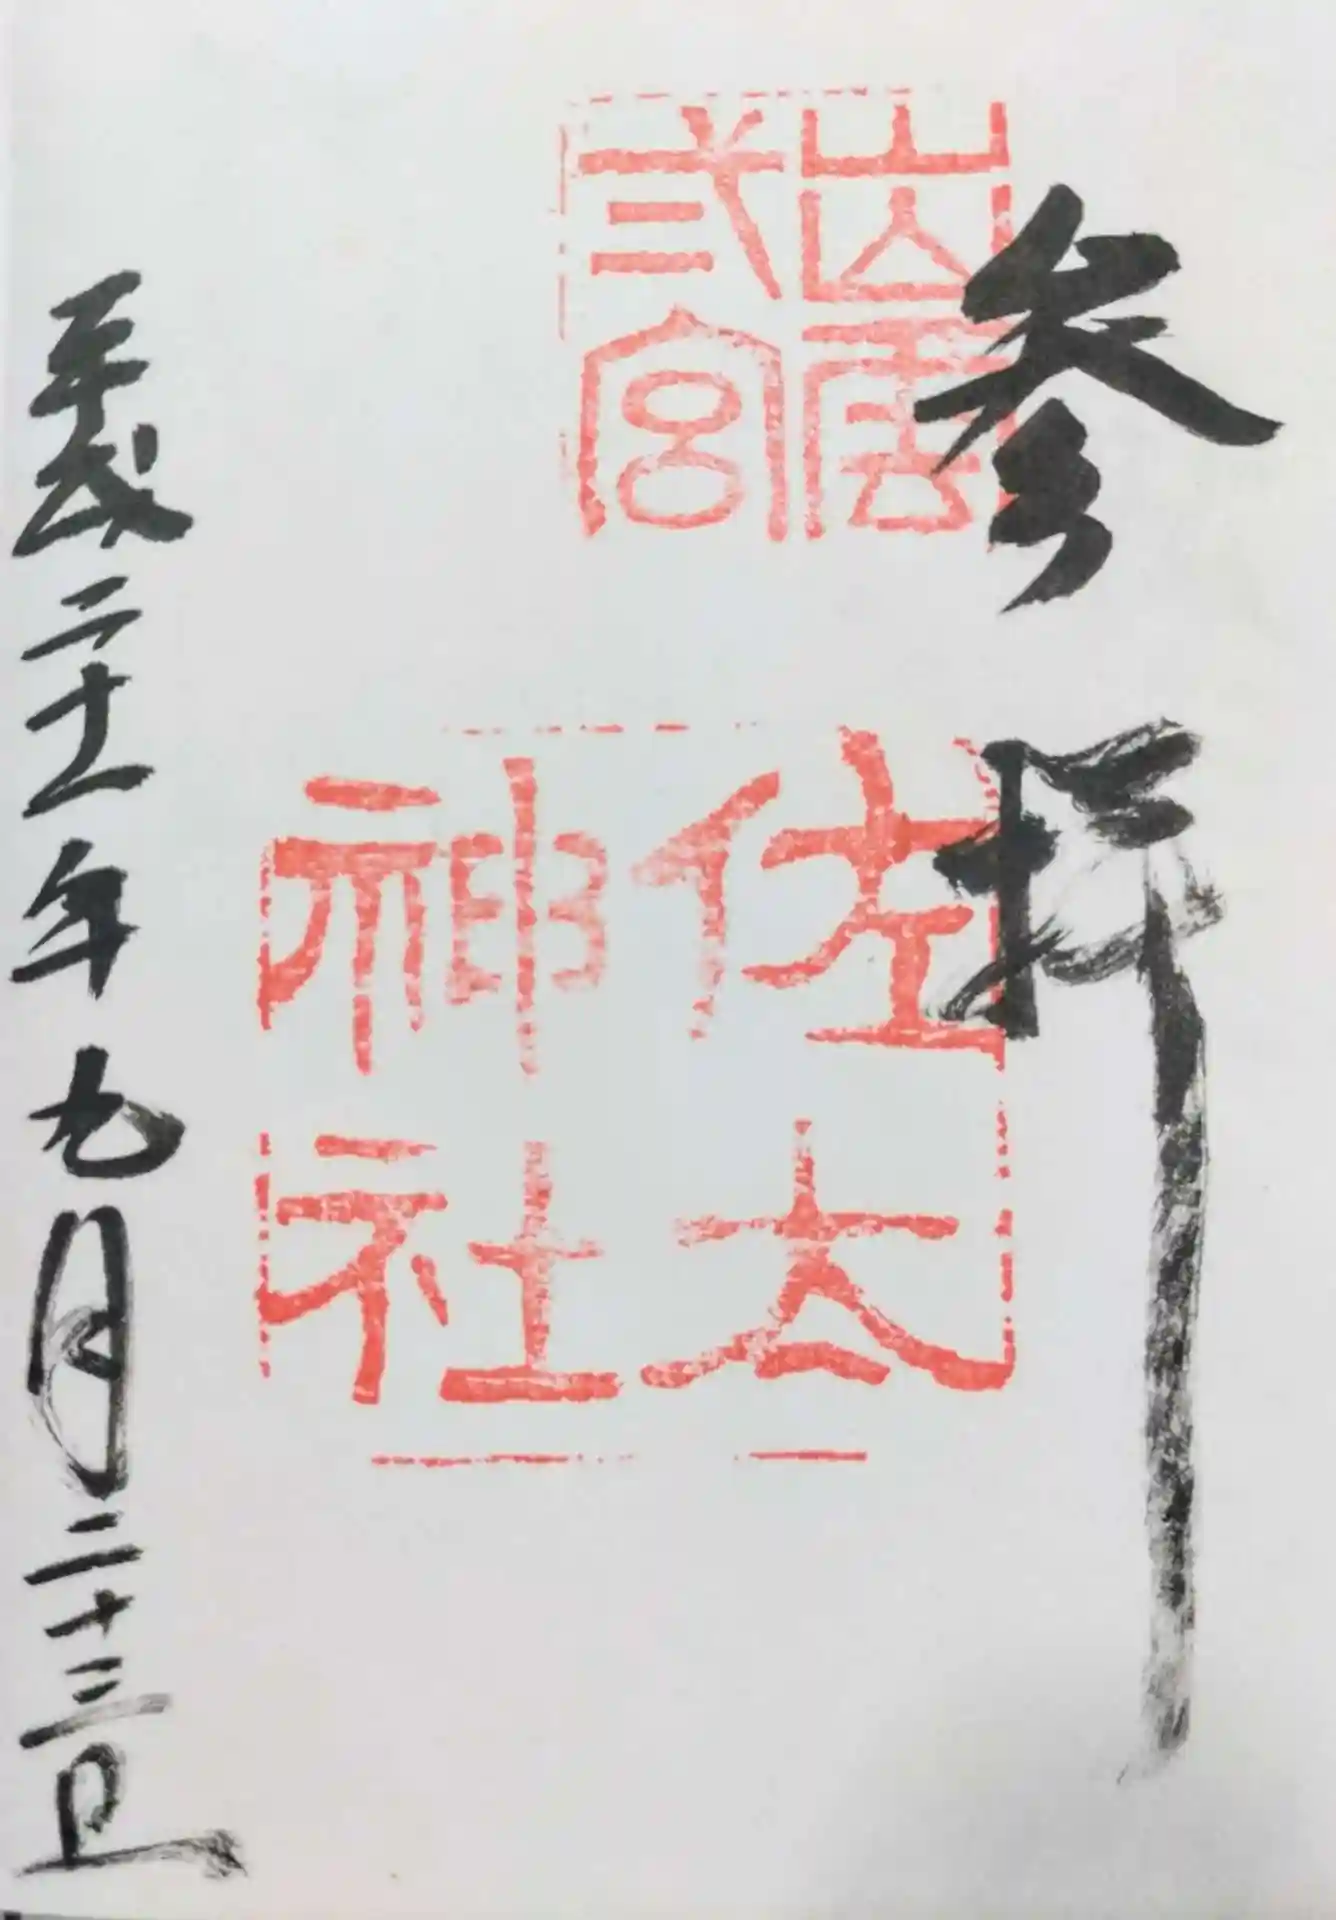 参拝
出雲
弍宮
佐太
神社
平成二十一年九月二十三日